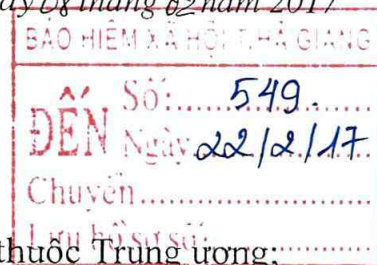 ày 08 tháng 02 năm 2017
BẢO HIỂM XÃ HỘI T. HÀ GIANG
ĐẾN
Số:.....549.......
Ngày 22/2/17
Chuyển.....................
Lưu hồ sơ số:.............
thuộc Trung ương;